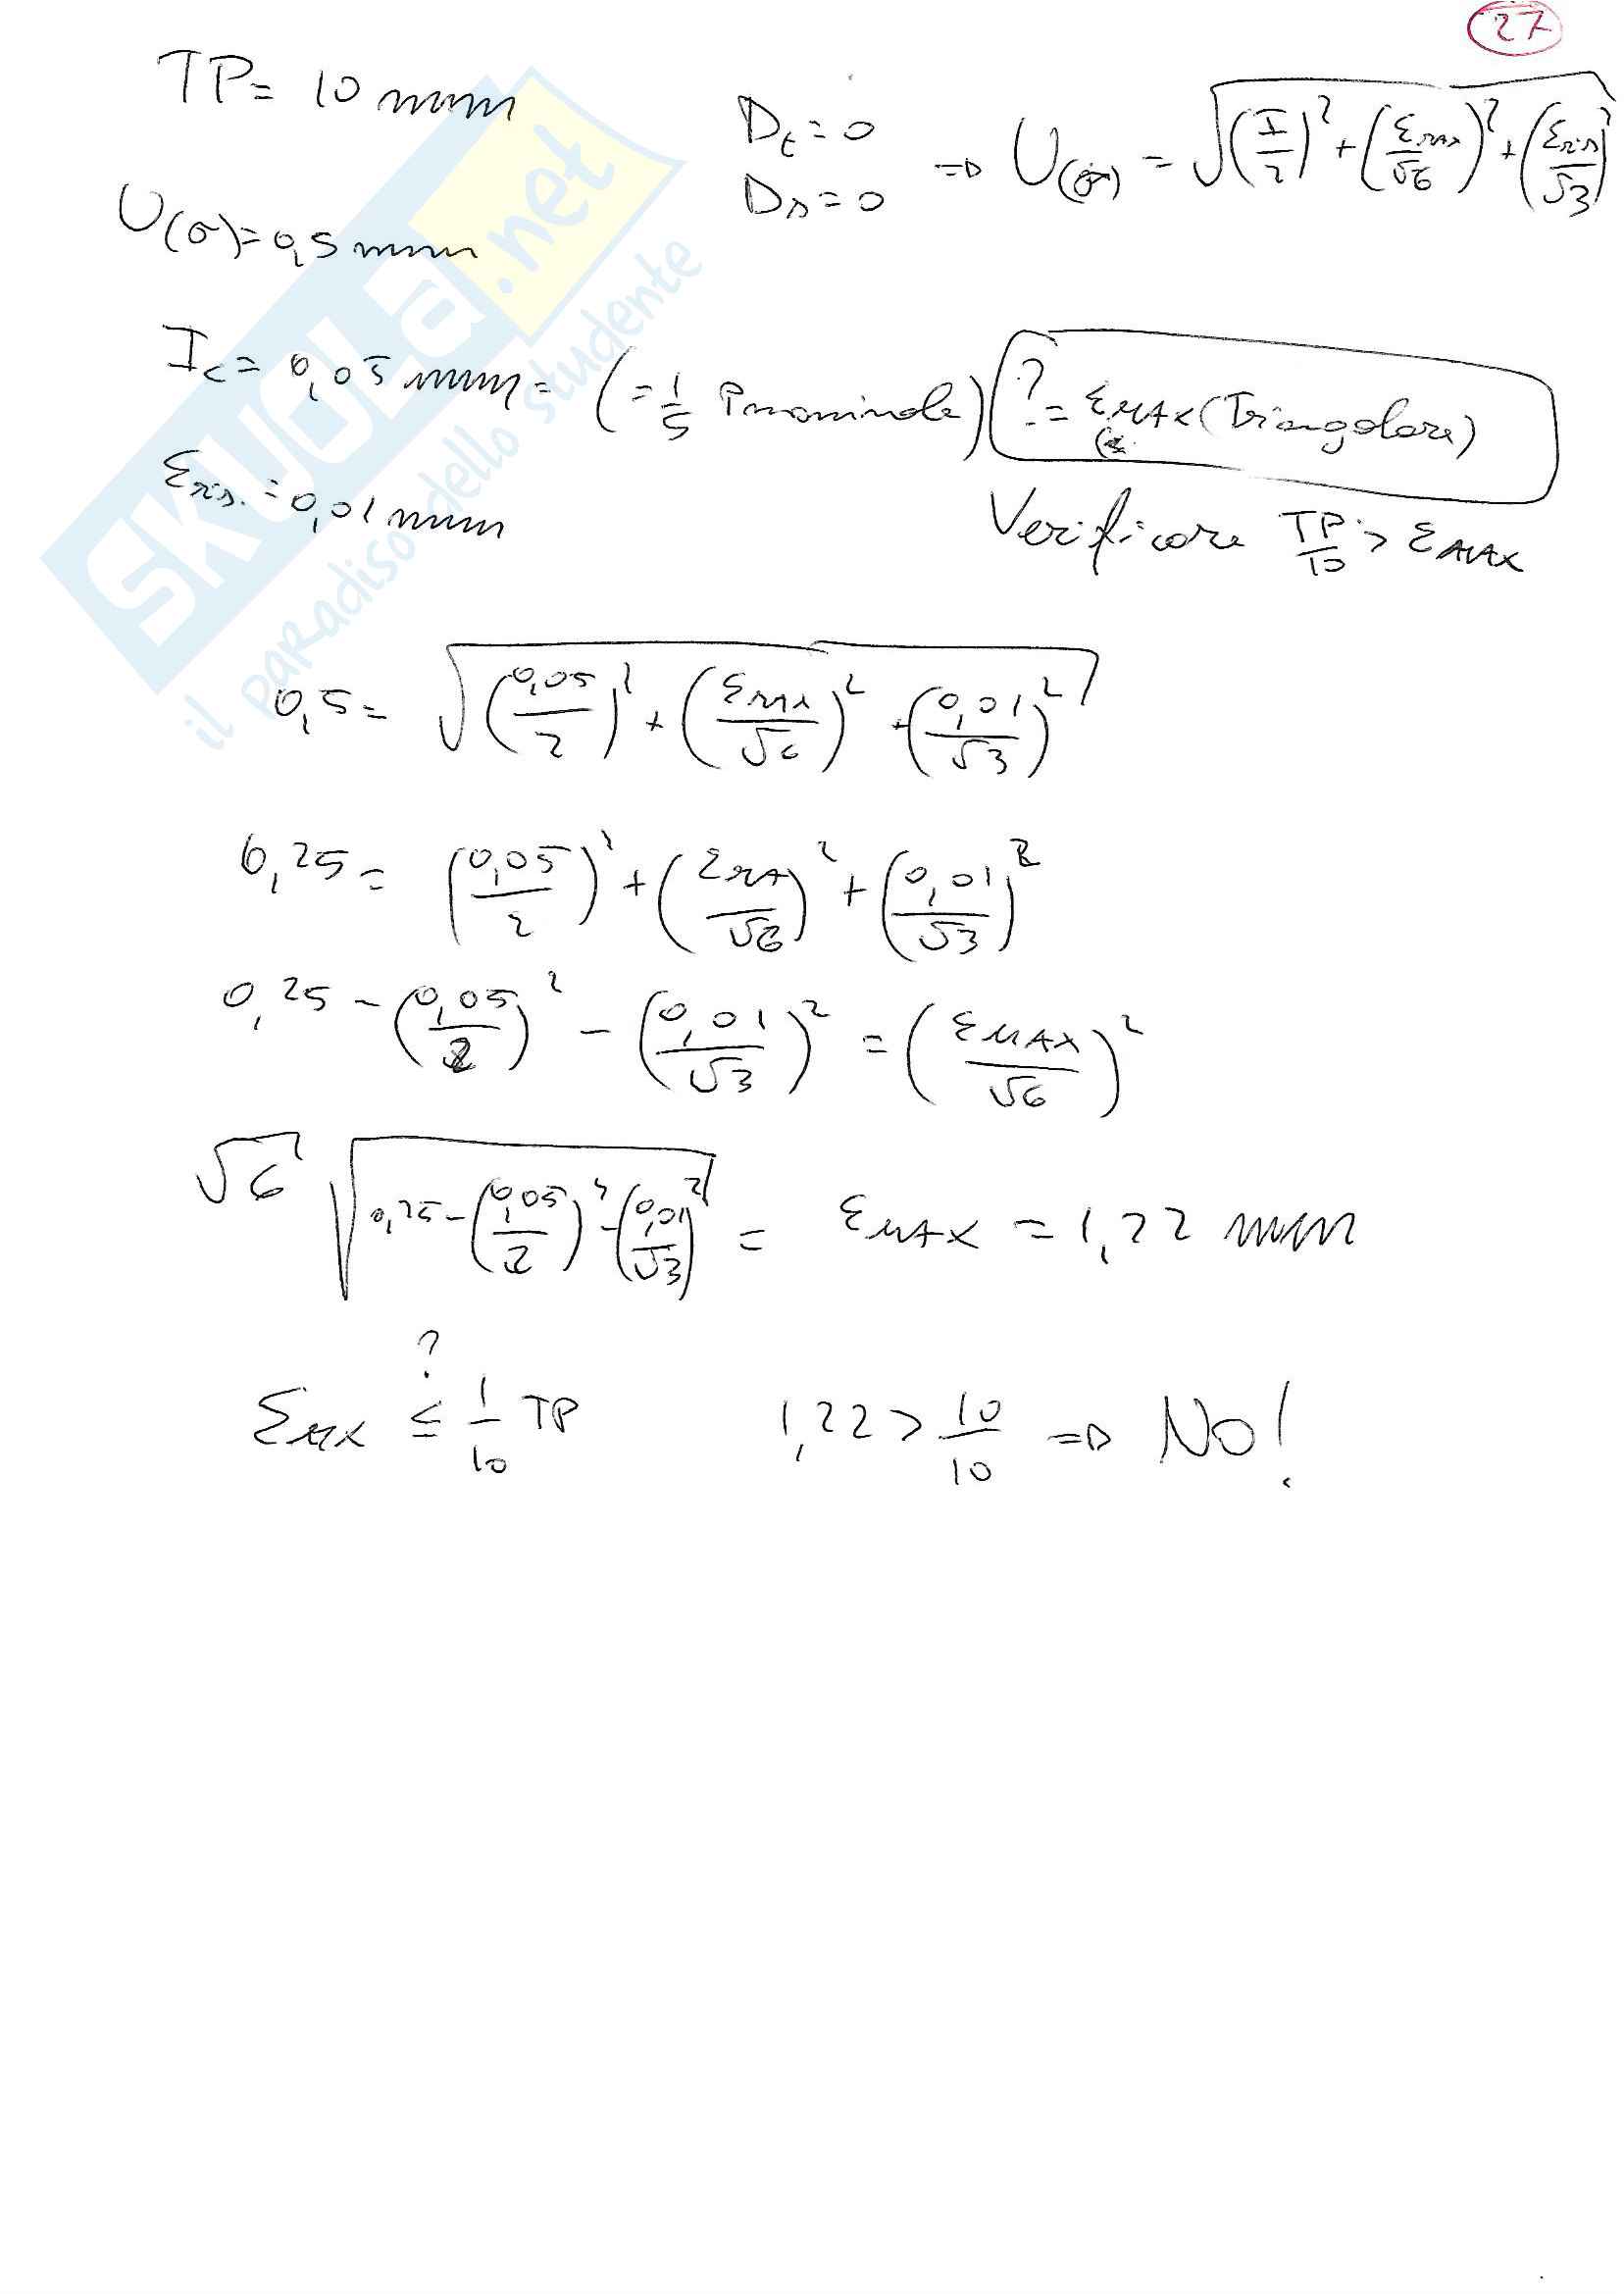 27
TP = 10 mm
D_t = 0
D_s = 0
⇒ U(σ) = √((I/2)² + (ε_max/√6)² + (ε_ris/√3)²)
U(σ) = 0,5 mm
I_c = 0,05 mm = (= 1/5 P nominale) ? = ε_MAX (Triangolare)
ε_ris. = 0,01 mm
Verificare TP/10 > ε_MAX
0,5 = √((0,05/2)² + (ε_MAX/√6)² + (0,01/√3)²)
0,25 = (0,05/2)² + (ε_MAX/√6)² + (0,01/√3)²
0,25 - (0,05/2)² - (0,01/√3)² = (ε_MAX/√6)²
√6 √(0,25 - (0,05/2)² - (0,01/√3)²) = ε_MAX = 1,22 mm
?
ε_MAX ≤ 1/10 TP 1,22 > 10/10 ⇒ NO!
SKUOLa.net
il paradiso dello studente